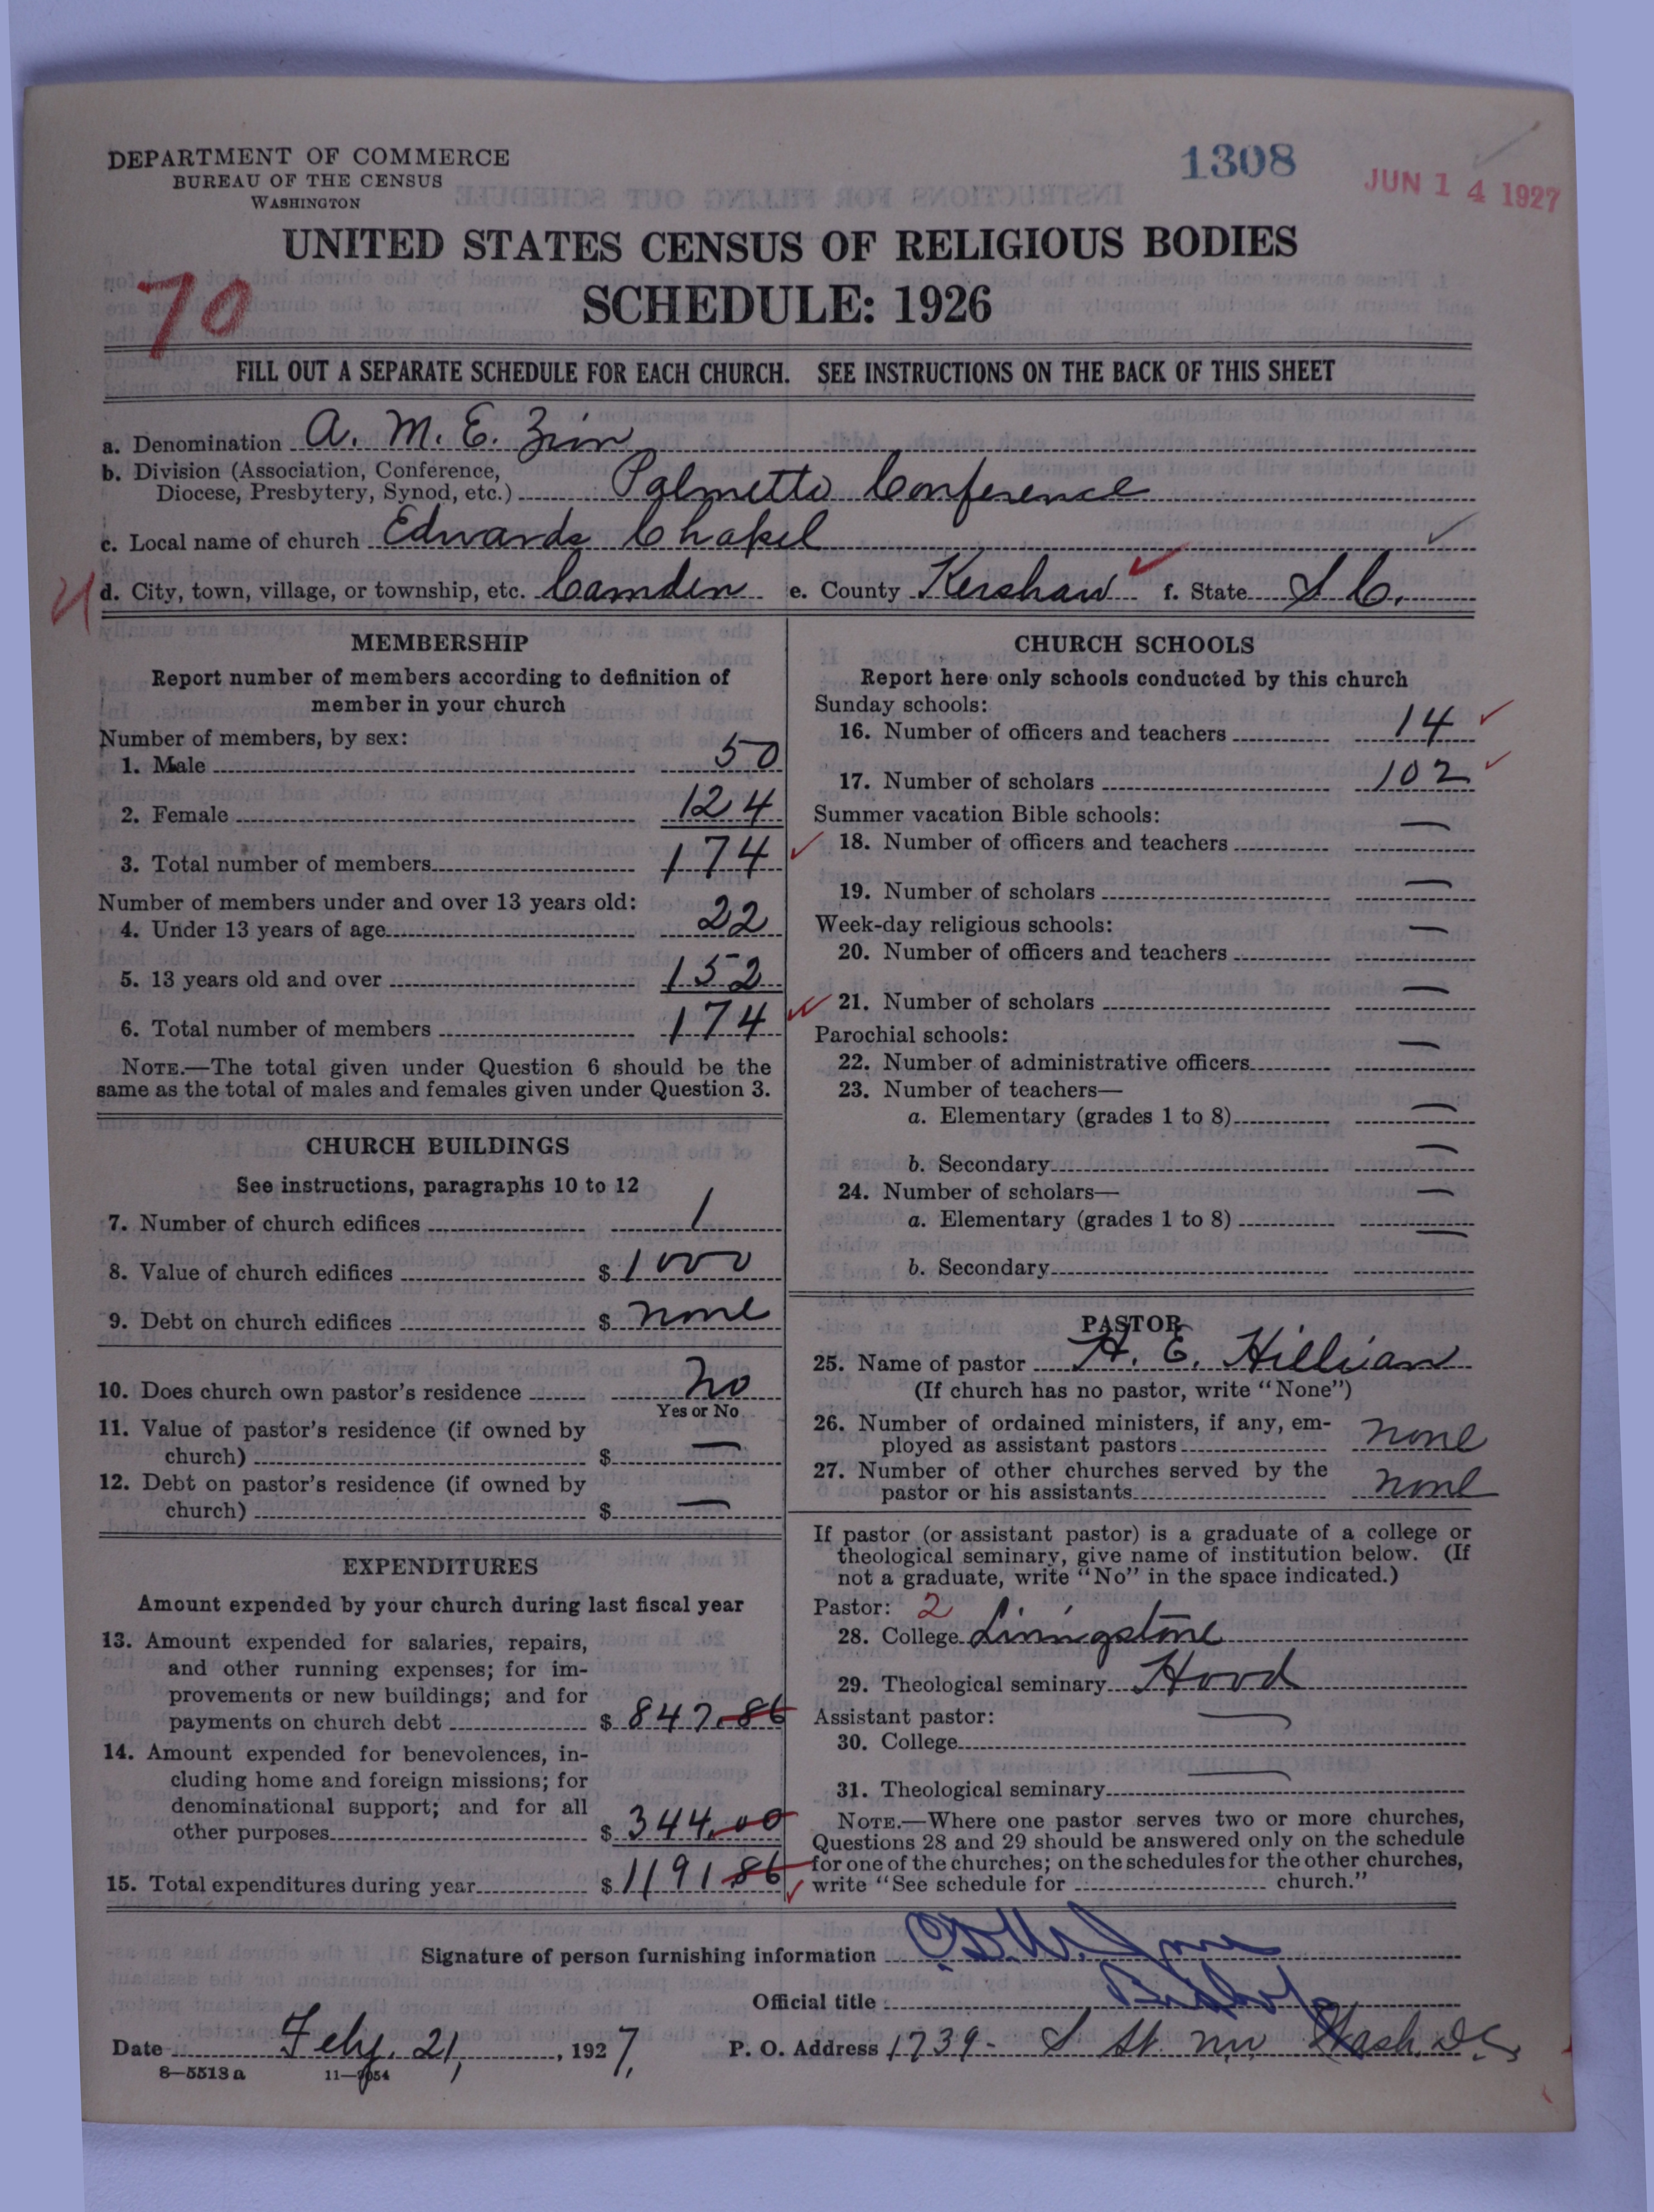 DEPARTMENT OF COMMERCE
BUREAU OF THE CENSUS
WASHINGTON
1308
JUN 14 1927
UNITED STATES CENSUS OF RELIGIOUS BODIES
SCHEDULE: 1926
70
FILL OUT A SEPARATE SCHEDULE FOR EACH CHURCH. SEE INSTRUCTIONS ON THE BACK OF THIS SHEET
a. Denomination A. M. E. Zion
b. Division (Association, Conference,
Diocese, Presbytery, Synod, etc.) Palmetto Conference
c. Local name of church Edwards Chapel
d. City, town, village, or township, etc. Camden e. County Kershaw f. State S C.
MEMBERSHIP
Report number of members according to definition of
member in your church
Number of members, by sex:
1. Male 50
2. Female 124
3. Total number of members 174
Number of members under and over 13 years old:
4. Under 13 years of age 22
5. 13 years old and over 152
6. Total number of members 174
NOTE.—The total given under Question 6 should be the
same as the total of males and females given under Question 3.
CHURCH BUILDINGS
See instructions, paragraphs 10 to 12
7. Number of church edifices 1
8. Value of church edifices $ 1000
9. Debt on church edifices $ none
10. Does church own pastor's residence No
Yes or No
11. Value of pastor's residence (if owned by
church) $ —
12. Debt on pastor's residence (if owned by
church) $ —
EXPENDITURES
Amount expended by your church during last fiscal year
13. Amount expended for salaries, repairs,
and other running expenses; for im-
provements or new buildings; and for
payments on church debt $ 847.86
14. Amount expended for benevolences, in-
cluding home and foreign missions; for
denominational support; and for all
other purposes $ 344.00
15. Total expenditures during year $ 1191.86
CHURCH SCHOOLS
Report here only schools conducted by this church
Sunday schools:
16. Number of officers and teachers 14
17. Number of scholars 102
Summer vacation Bible schools:
18. Number of officers and teachers —
19. Number of scholars —
Week-day religious schools:
20. Number of officers and teachers —
21. Number of scholars —
Parochial schools:
22. Number of administrative officers —
23. Number of teachers—
a. Elementary (grades 1 to 8) —
b. Secondary —
24. Number of scholars—
a. Elementary (grades 1 to 8) —
b. Secondary —
PASTOR
25. Name of pastor H. E. Hillian
(If church has no pastor, write "None")
26. Number of ordained ministers, if any, em-
ployed as assistant pastors none
27. Number of other churches served by the
pastor or his assistants none
If pastor (or assistant pastor) is a graduate of a college or
theological seminary, give name of institution below. (If
not a graduate, write "No" in the space indicated.)
Pastor: 2
28. College Livingstone
29. Theological seminary Hood
Assistant pastor:
30. College —
31. Theological seminary —
NOTE.—Where one pastor serves two or more churches,
Questions 28 and 29 should be answered only on the schedule
for one of the churches; on the schedules for the other churches,
write "See schedule for church."
Signature of person furnishing information
Official title Bishop
Date Feby. 21, 1927, P. O. Address 1739- S St. NW Wash. D.C.
8—5513a